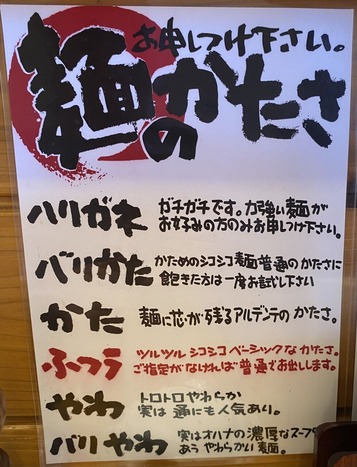 お申しつけ下さい。
麺のかたさ
ハリガネ
ガチガチです。力強い麺が
お好みの方のみお申しつけ下さい。
バリかた
かためのシコシコ麺普通のかたさに
飽きた方は一度お試し下さい
かた
麺に芯が残るアルデンテのかたさ。
ふつう
ツルツルシコシコベーシックなかたさ。
ご指定がなければ普通でお出しします。
やわ
トロトロやわらか
実は通にも人気あり。
バリやわ
実はオハナの濃厚なスープに
あうやわらかい麺。